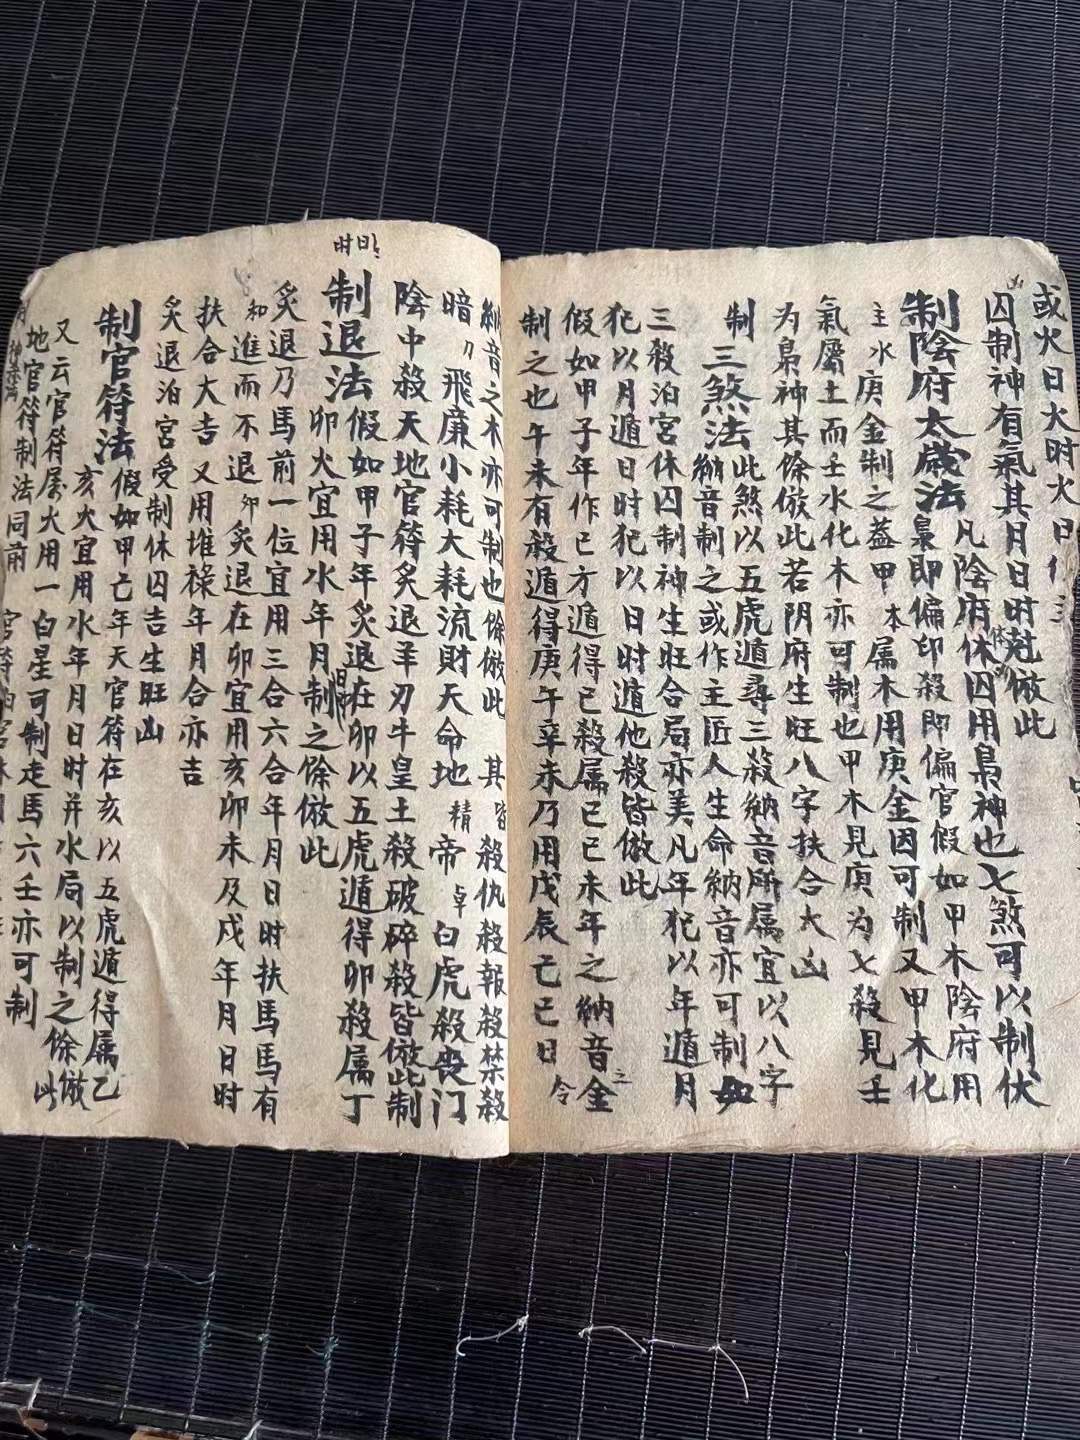 或火日火时火
囚制神有氣其月日时尅倣此
凶
制陰府太歲法
凡陰府休囚用梟神也七煞可以制伏
梟即偏印殺即偏官假如甲木陰府用
主水庚金制之蓋甲本属木用庚金因可制又甲木化
氣屬土而壬水化木亦可制也甲木見庚为七殺見壬
为梟神其餘倣此若阴府生旺八字扶合大凶
制三煞法
納音此煞以五虎遁尋三殺納音所属宜以八字
納音制之或作主匠人生命納音亦可制如
三殺泊宮休囚制神生旺合局亦美凡年犯以年遁月
犯以月遁日时犯以日时遁他殺皆倣此
假如甲子年作巳方遁得己殺属己巳木年之納音金
之
制之也午未有殺遁得庚午辛未乃用戊辰己巳日
令
納音之木亦可制也餘倣此 其皆殺仇殺報殺禁殺
暗刀飛廉小耗大耗流財天命地精帝卓白虎殺喪门
陰中殺天地官符炙退羊刃牛皇土殺破碎殺皆倣此制
时日
制退法
假如甲子年炙退在卯以五虎遁得卯殺属丁
卯火宜用水年月日时制之餘倣此
炙退乃馬前一位宜用三合六合年月日时扶馬馬有
和進而不退卯炙退在卯宜用亥卯未及戌年月日时
扶合大吉又用堆祿年月合亦吉
炙退泊宮受制休囚吉生旺凶
制官符法
假如甲己年天官符在亥以五虎遁得属乙
亥火宜用水年月日时并水局以制之餘倣此
又云官符属火用一白星可制走馬六壬亦可制
地官符制法同前